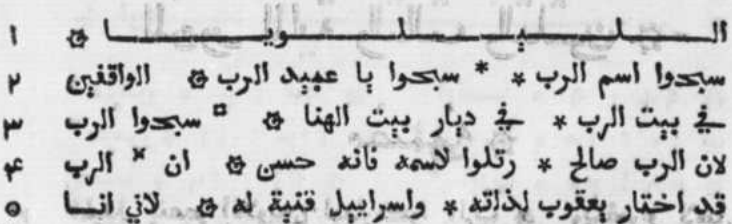 الليلويا ۞ ١
سبحوا اسم الرب * * سبحوا يا عبيد الرب ۞ الواقفين ٢
في بيت الرب * في ديار بيت الهنا ۞ ¤ سبحوا الرب ٣
لان الرب صالح * رتلوا لاسمه فانه حسن ۞ ان * الرب ۴
قد اختار يعقوب لذاته * واسراييل قنية له ۞ لاني انا ٥